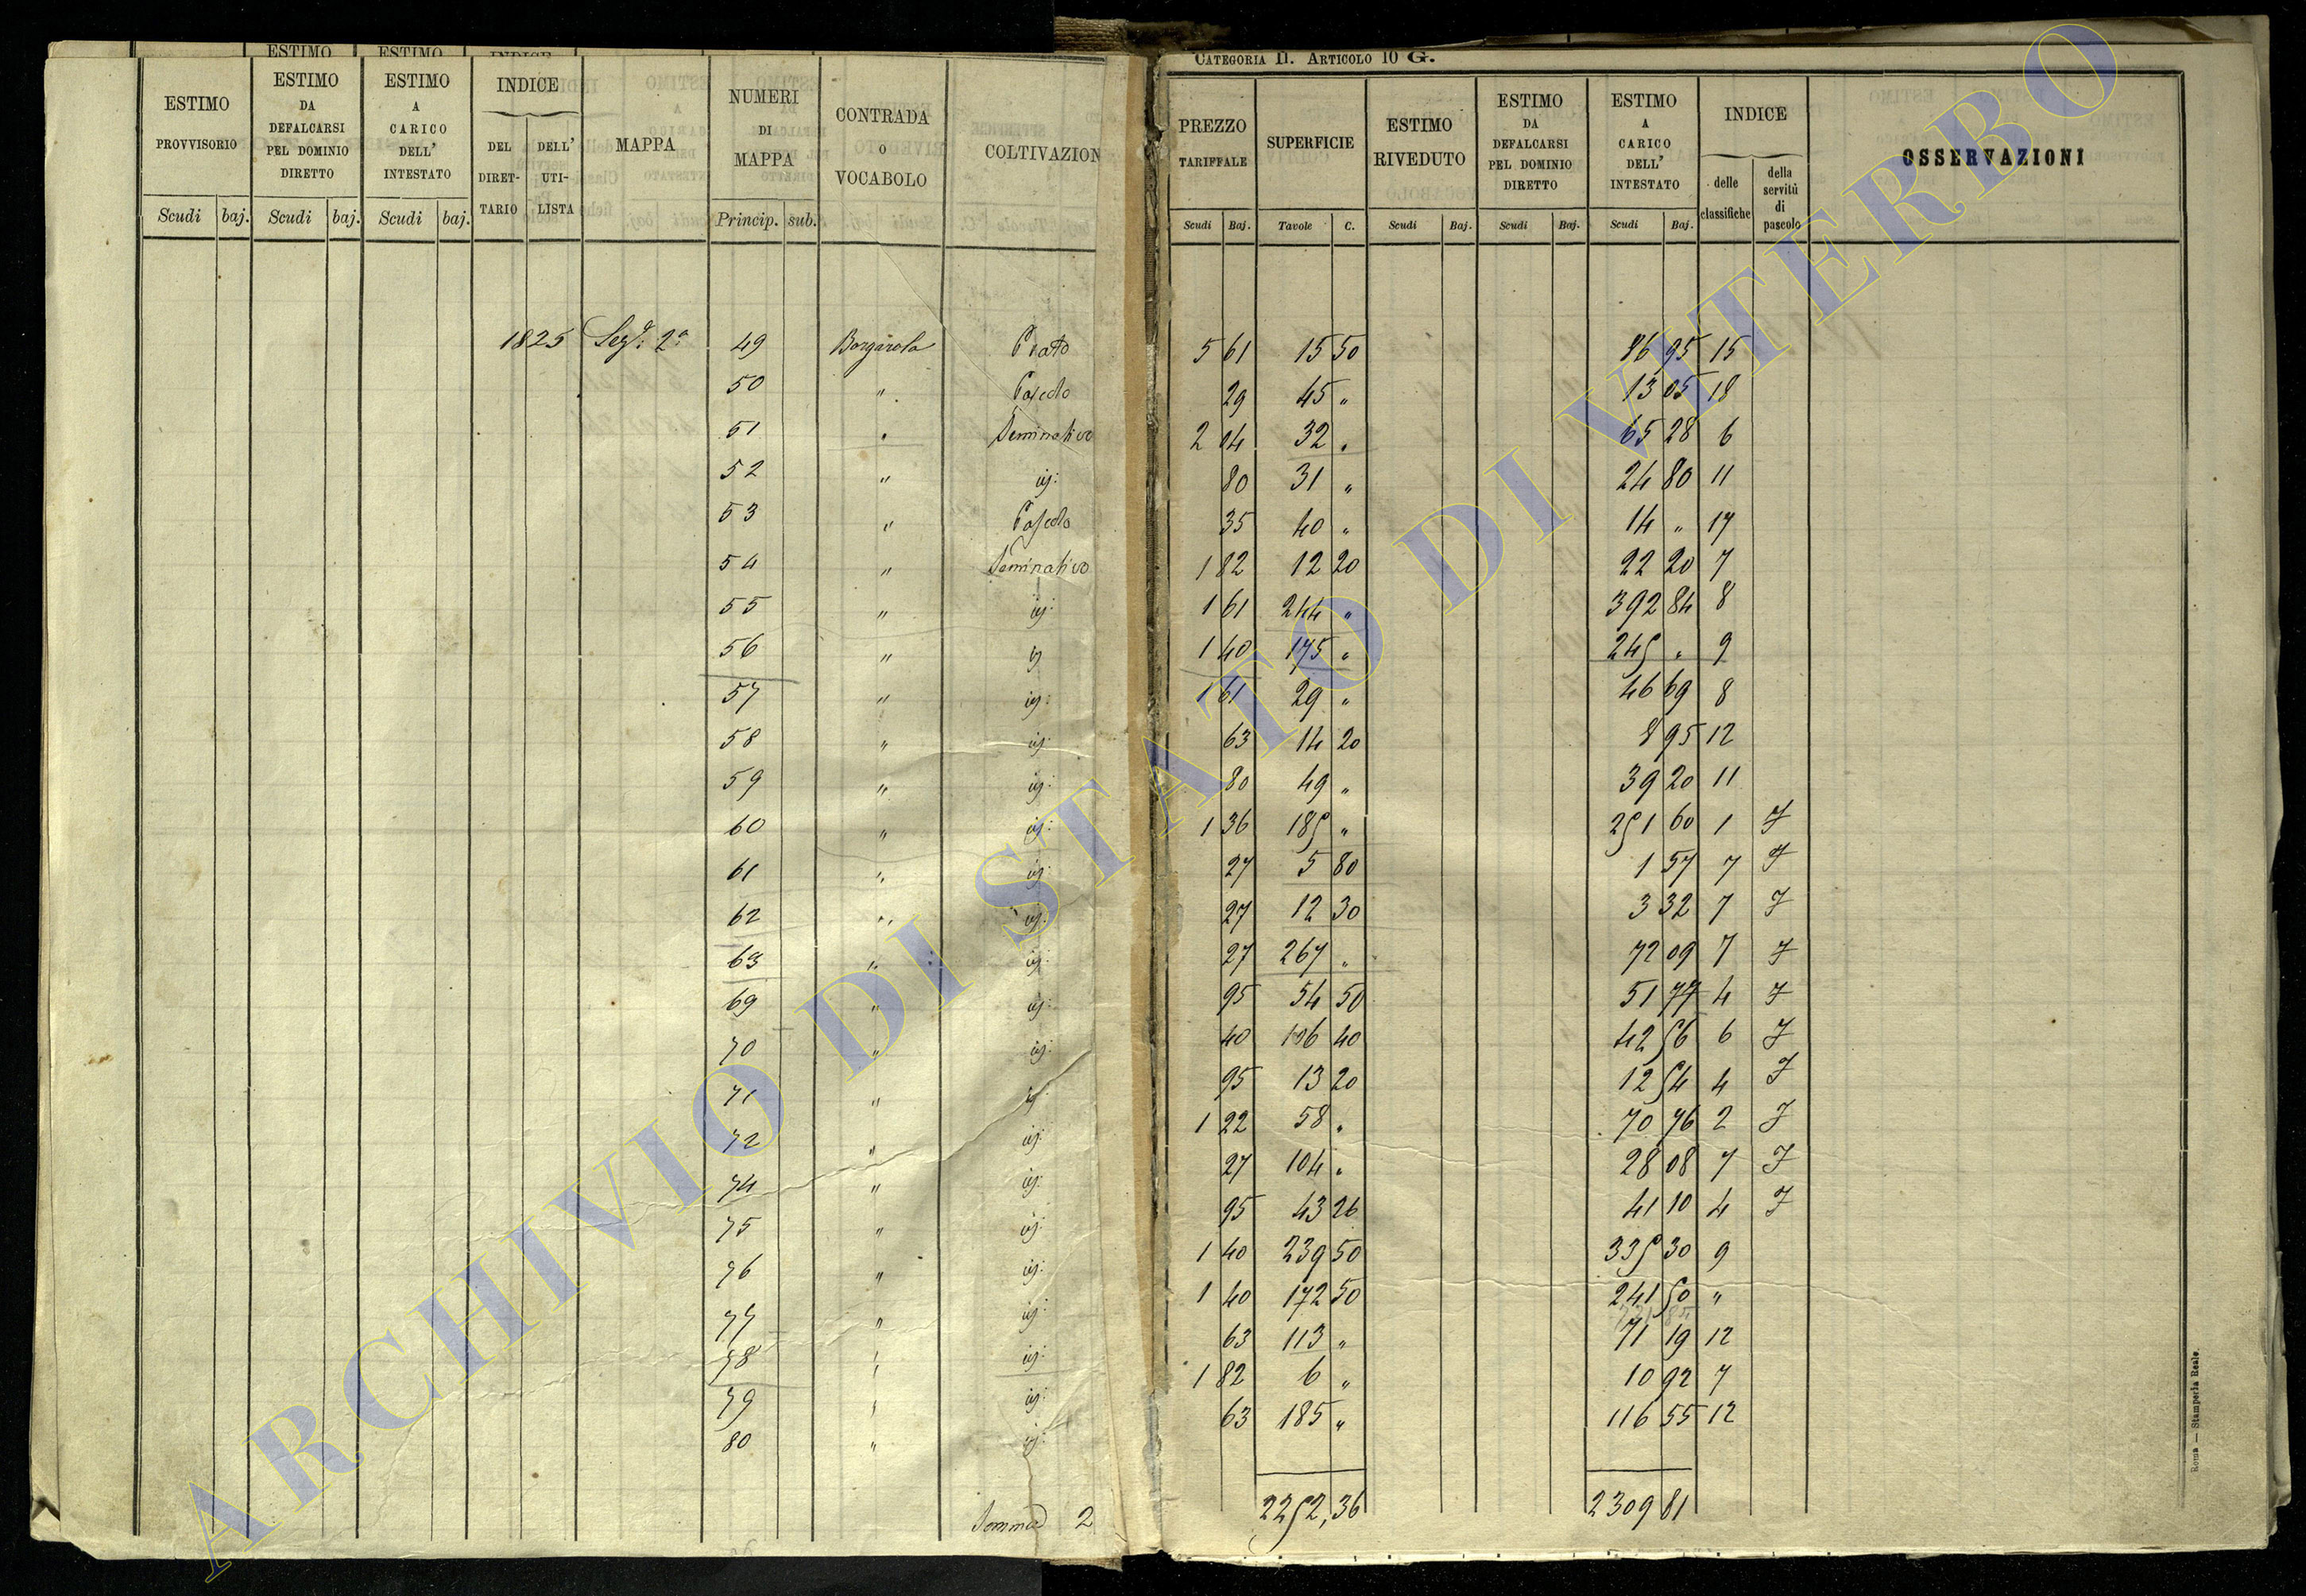 ESTIMO ESTIMO INDICE
CATEGORIA II. ARTICOLO 10 G.
ESTIMO PROVVISORIO | ESTIMO DA DEFALCARSI PEL DOMINIO DIRETTO | ESTIMO A CARICO DELL' INTESTATO | INDICE DEL DIRETTARIO DELL' UTILISTA | MAPPA | NUMERI DI MAPPA | CONTRADA O VOCABOLO | COLTIVAZION | PREZZO TARIFFALE | SUPERFICIE | ESTIMO RIVEDUTO | ESTIMO DA DEFALCARSI PEL DOMINIO DIRETTO | ESTIMO A CARICO DELL' INTESTATO | INDICE delle classifiche della servitù di pascolo | OSSERVAZIONI
Scudi baj. Scudi baj. Scudi baj. Princip. sub. Scudi Baj. Tavole C. Scudi Baj. Scudi Baj. Scudi Baj.
1825 Sez.e 2a 49 Borgarola Prato 5 61 15 50 86 95 15
50 " Pascolo 29 45 " 13 05 18
51 " Seminativo 2 04 32 " 65 28 6
52 " id: 80 31 " 24 80 11
53 " Pascolo 35 40 " 14 " 17
54 " Seminativo 1 82 12 20 22 20 7
55 " id: 1 61 244 " 392 84 8
56 " id 1 40 175 " 245 " 9
57 " id: 1 61 29 " 46 69 8
58 " id: 63 14 20 8 95 12
59 " id: 80 49 " 39 20 11
60 " id: 1 36 185 " 251 60 1 J
61 " id: 27 5 80 1 57 7 J
62 " id: 27 12 30 3 32 7 J
63 " id: 27 267 " 72 09 7 J
69 " id: 95 54 50 51 77 4 J
70 " id: 40 106 40 42 56 6 J
71 " id: 95 13 20 12 54 4 J
72 " id: 1 22 58 " 70 76 2 J
74 " id: 27 104 " 28 08 7 J
75 " id: 95 43 26 41 10 4 J
76 " id: 1 40 239 50 335 30 9
77 " id: 1 40 172 50 241 50 "
78 " id: 63 113 " 71 19 12
79 " id: 1 82 6 " 10 92 7
80 " id: 63 185 " 116 55 12
Somma 2 2252,36 2309 81
Roma — Stamperia Reale.
ARCHIVIO DI STATO DI VITERBO